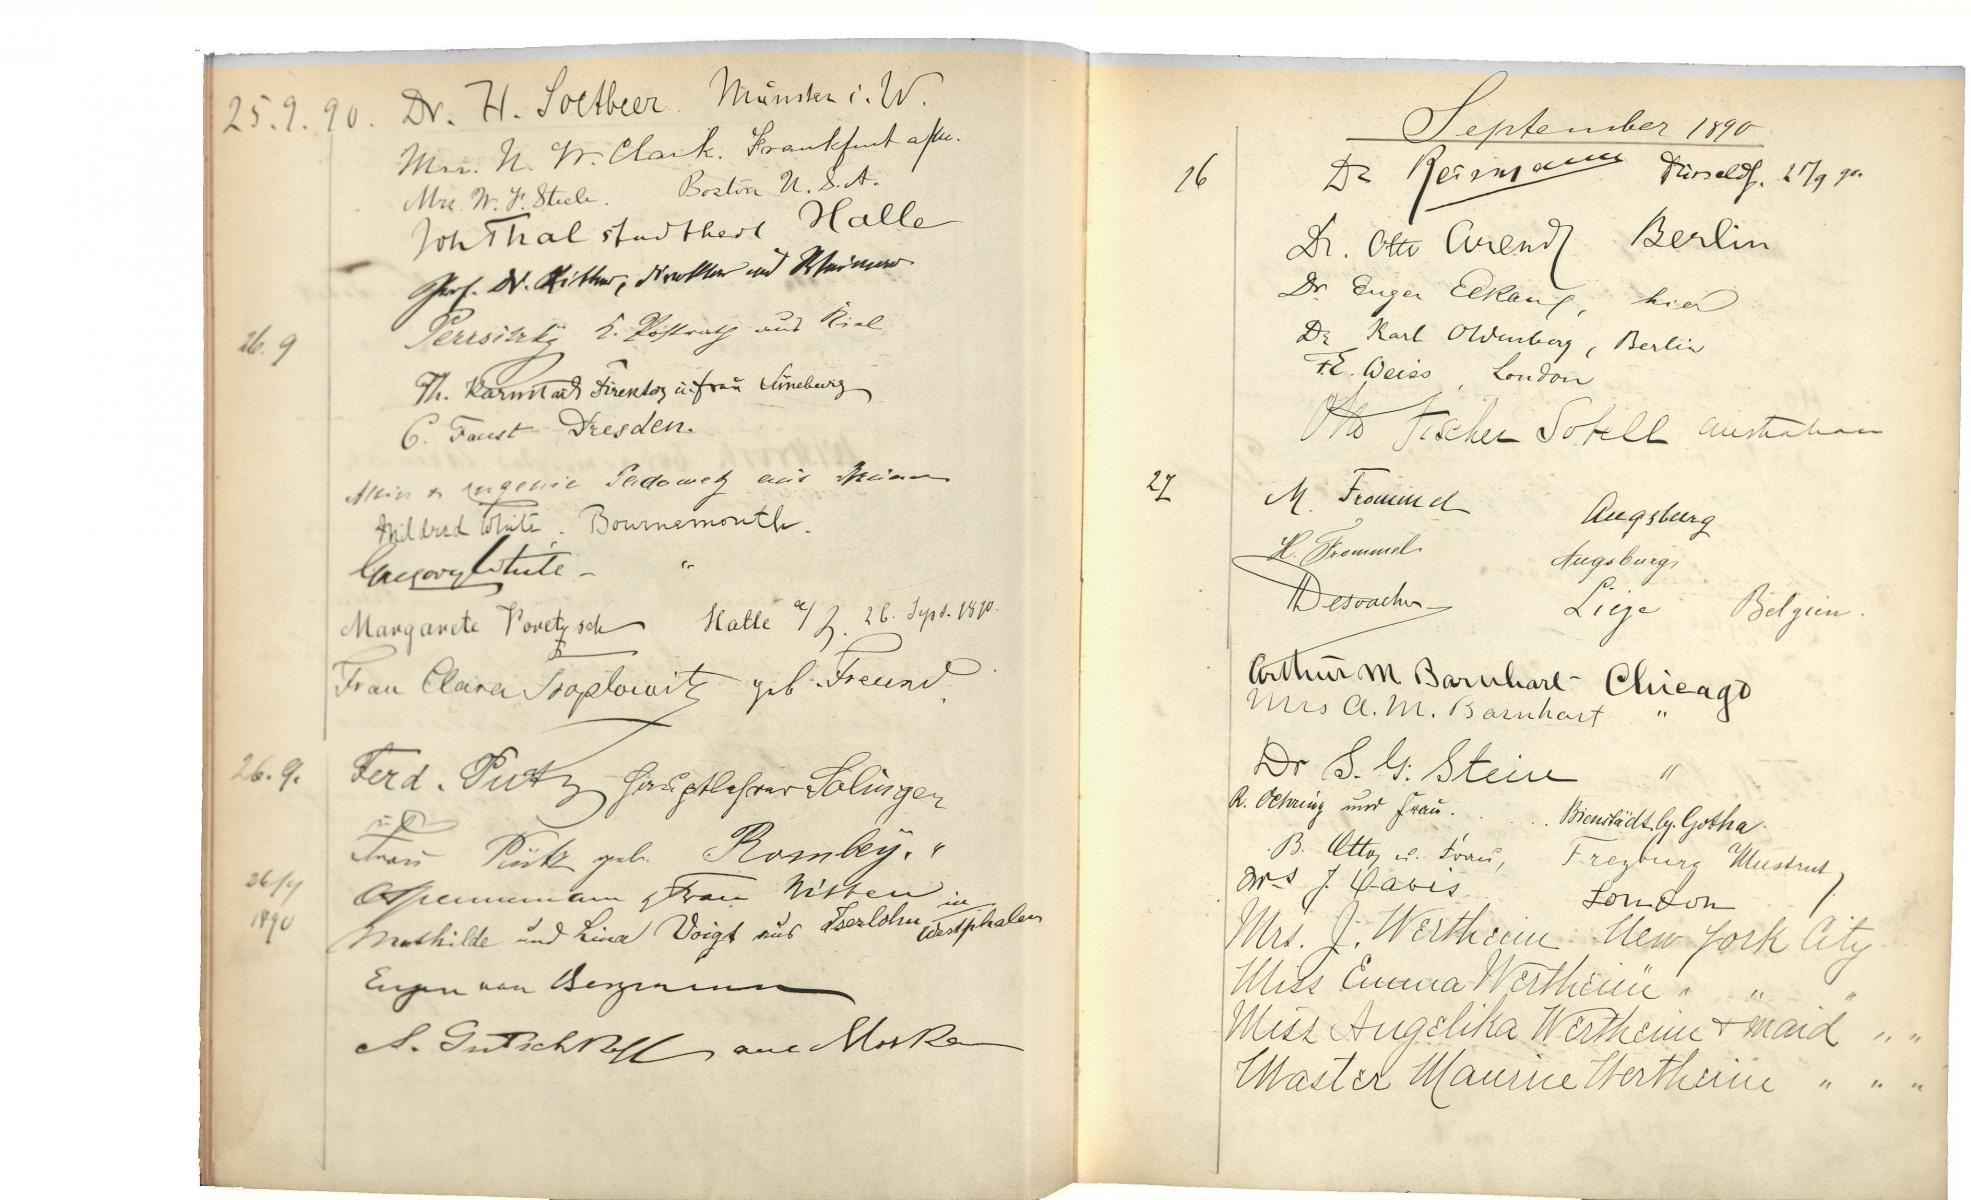 25.9.90. Dr. H. Soetbeer Münster i. W.
Mrs. N. W. Clark. Frankfurt a/m.
Mrs. W. F. Steele. Boston U.S.A.
Joh Thal Halle
Prof. Dr. Direktor aus
26.9 aus Kiel
Th. Karnstädt Direktor u. Frau Lüneburg
C. Faust Dresden.
aus
Mildred White. Bournemouth.
Gregory White - "
Margarete Voretzsch Halle a/S. 26. Sept. 1890.
Frau Clara geb. Freund.
26.9. Ferd. Pütz Hauptlehrer Solingen
u.
Frau Pütz geb. Rombey. "
26/9
1890
Frau Witten in
Mathilde und Lina Voigt aus Iserlohn Westphalen
Eugen von Bergmann
A. aus Moskau
September 1890
26 Dr Reismann Düsseldf. 25/9 90.
Dr. Otto Arendt Berlin
Dr. Eugen Elkan, hier
Dr Karl Oldenberg, Berlin
F.E. Weiss, London
Otto Fischer Sobell Australian
27 M. Frommel Augsburg
H. Frommel Augsburg
Liége Belgien.
Arthur M Barnhart - Chicago
Mrs A. M. Barnhart "
Dr S. G. Stein "
R. Oehring und Frau. . . . . Bienstädt bg. Gotha.
B. Otto u. Frau, Freyburg Unstrut
Mrs J. Davis London
Mrs. J. Wertheim New York City
Miss Emma Wertheim " " "
Miss Angelika Wertheim + maid " "
Master Maurice Wertheim " " "